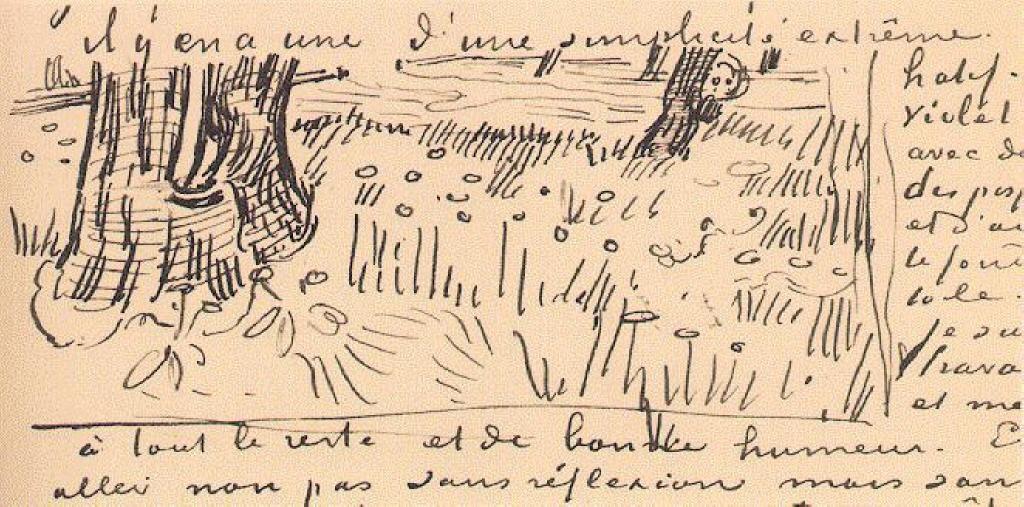 il y en a une d'une simplicité extrême.
violet
avec de
des
et d'au
le
je su
trava
et me
à tout le reste et de bonne humeur. E
aller non pas sans réflexion mais san